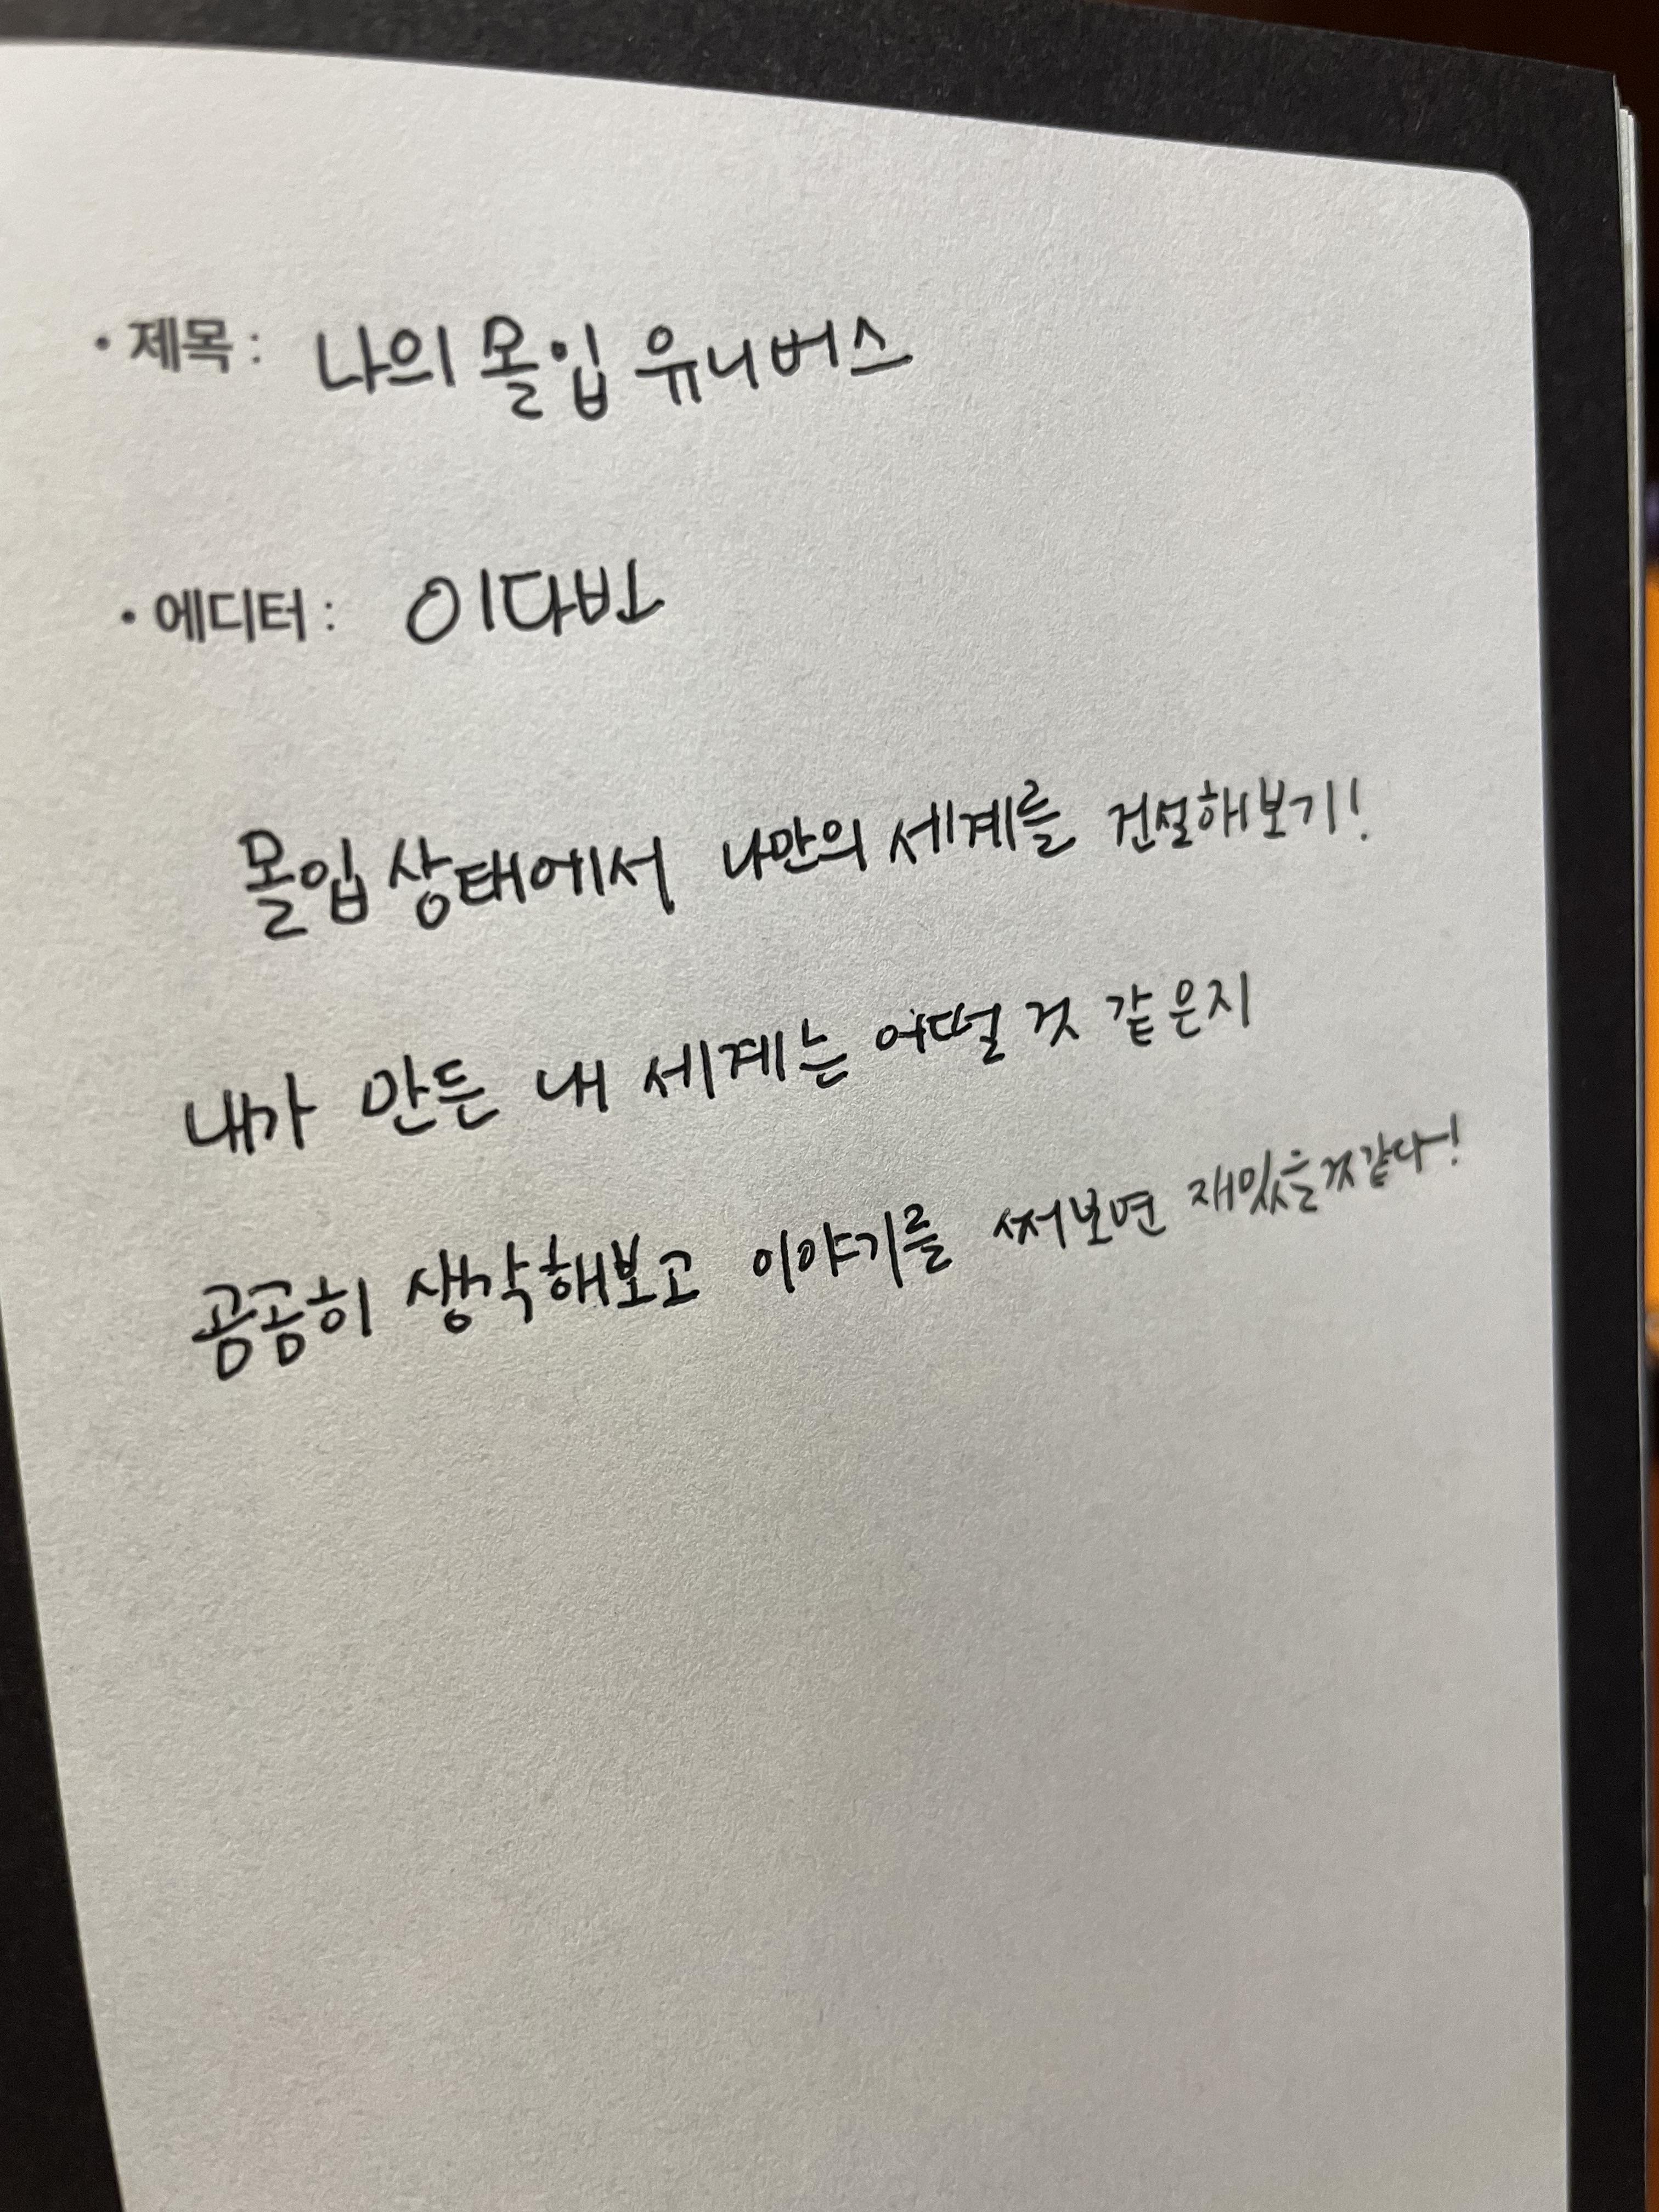 · 제목 : 나의 몰입 유니버스
· 에디터 : 이다빈
몰입 상태에서 나만의 세계를 건설해보기!
내가 만든 내 세계는 어떨 것 같은지
곰곰히 생각해보고 이야기를 써보면 재밌을것같다~!